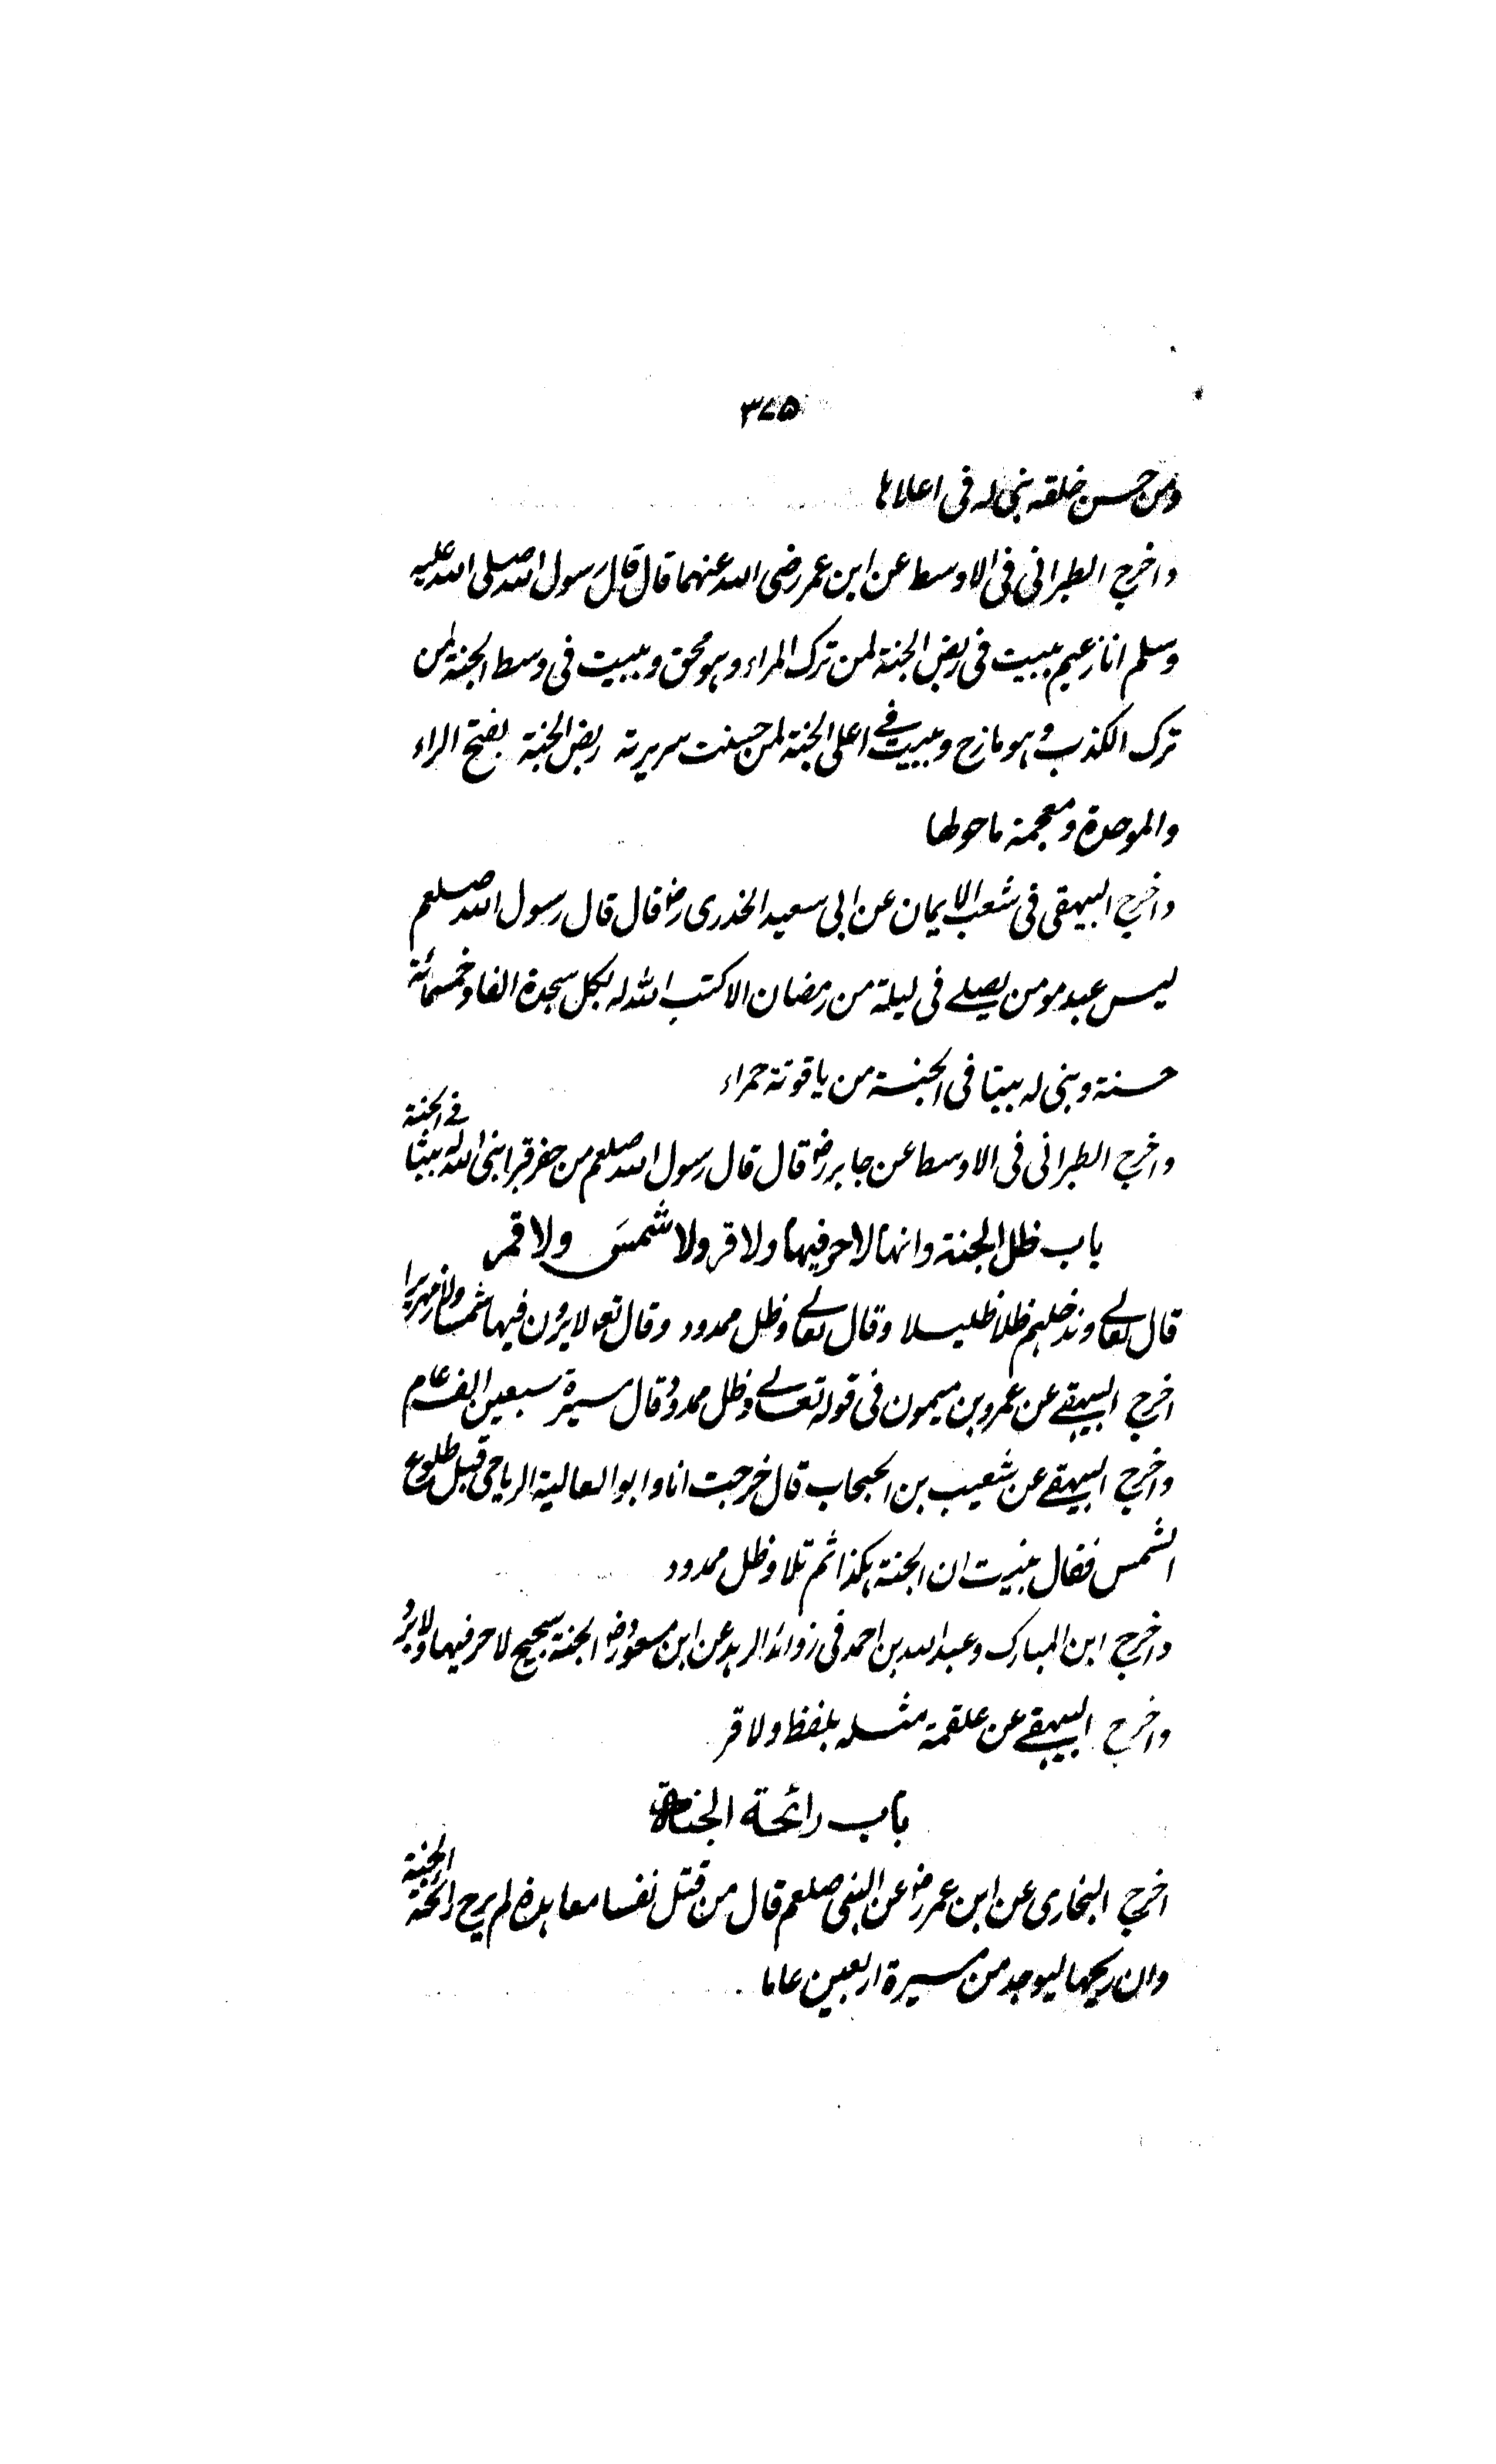 ٣٧٥
ومن حسن خلقه بنى له فى اعلاها
واخرج الطبرانى فى الاوسط عن ابن عمر رضى الله عنهما قال قال رسول الله صلى الله عليه
وسلم انا زعيم ببيت فى ربض الجنة لمن ترك المراء وهو محق وببيت فى وسط الجنة لمن
ترك الكذب وهو مازح وببيت فى اعلى الجنة لمن حسنت سريرته ربض الجنة بفتح الراء
والموحدة ومعجمة ماحولها
واخرج البيهقى فى شعب الايمان عن ابى سعيد الخدرى رض قال قال رسول الله صلعم
ليس عبد مومن يصلے فى ليلة من رمضان الا كتب الله له بكل سجدة الفا وخمسمائة
حسنة وبنى له بيتا فى الجنة من ياقوتة حمراء
واخرج الطبرانى فى الاوسط عن جابر رض قال قال رسول الله صلعم من حفر قبرا بنى الله له بيتا فے الجنة
باب ظل الجنة وانها لا حر فيها ولا قر ولا شمس ولا قمر
قال تعالے وندخلهم ظلا ظليلا وقال تعالے وظل ممدود وقال تع لا يرون فيها شمسا ولا زمهريرا
اخرج البيهقے عن عمرو بن ميمون فى قوله تعالے وظل ممدود قال مسيرة سبعين الف عام
واخرج البيهقے عن شعيب بن الحبحاب قال خرجت انا وابو العالية الرياحى قبل طلوع
الشمس فقال ان الجنة هكذا ثم تلا وظل ممدود
واخرج ابن المبارك وعبد الله بن احمد فى زوائد الزهد عن ابن مسعود رض الجنة سجسج لا حر فيها ولا برد
واخرج البيهقے عن علقمة مثله بلفظ ولا قر
باب رائحة الجنة
اخرج البخارى عن ابن عمر رض عن النبى صلعم قال من قتل نفسا معاهدة لم يرح رائحة الجنة
وان ريحها ليوجد من مسيرة اربعين عاما